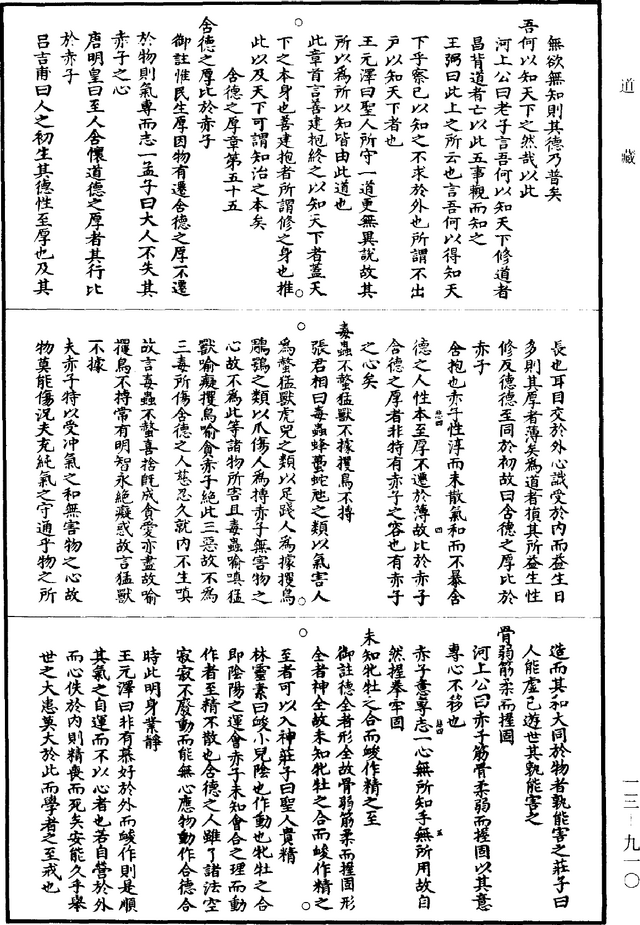 道藏
無欲無知則其德乃普矣
吾何以知天下之然哉以此
河上公曰老子言吾何以知天下修道者
昌背道者亡以此五事觀而知之
王弼曰此上之所云也言吾何以得知天
下乎察己以知之不求於外也所謂不出
戶以知天下者也
王元澤曰聖人所守一道更無異說故其
所以為所以知皆由此道也
此章首言善建抱終之以知天下者蓋天
下之本身也善建抱者所謂修之身也推
此以及天下可謂知治之本矣
含德之厚章第五十五
含德之厚比於赤子
御註惟民生厚因物有遷含德之厚不遷
於物則氣專而志一孟子曰大人不失其
赤子之心
唐明皇曰至人含懷道德之厚者其行比
於赤子
呂吉甫曰人之初生其德性至厚也及其
長也耳目交於外心識受於內而益生日
多則其厚者薄矣為道者損其所益生性
修反德德至同於初故曰含德之厚比於
赤子
舍抱也赤子性淳而未散氣和而不暴含
德之人性本至厚不遷於薄故比於赤子
含德之厚者非特有赤子之容也有赤子
之心矣
毒蟲不螫猛獸不據攫鳥不搏
張君相曰毒蟲蜂蠆蛇虺之類以氣害人
為螫猛獸虎兕之類以足踐人為據攫鳥
鵰鶚之類以爪傷人為搏赤子無害物之
心故不為此等諸物所害且毒蟲喻嗔猛
獸喻癡攫鳥喻貪赤子絕此三惡故不為
三毒所傷含德之人慈忍久就內不生嗔
故言毒蟲不螫喜捨既成貪愛亦盡故喻
攫鳥不搏常有明智永絕癡惑故言猛獸
不據
夫赤子特以受沖氣之和無害物之心故
物莫能傷況夫充純氣之守通乎物之所
造而其和大同於物者孰能害之莊子曰
人能虛己遊世其孰能害之
骨弱筋柔而握固
河上公曰赤子筋骨柔弱而握固以其意
專心不移也
赤子意專志一心無所知手無所用故自
然握拳牢固
未知牝牡之合而峻作精之至
御註德全者形全故骨弱筋柔而握固形
全者神全故未知牝牡之合而峻作精之
至者可以入神莊子曰聖人貴精
林靈素曰峻小兒陰也作動也牝牡之合
即陰陽之運會赤子未知會合之理而動
作者至精不散也含德之人雖了諸法空
寂寂不廢動而能無心應物動作合德合
時此明身業靜
王元澤曰非有慕好於外而峻作則是順
其氣之自運而不以心者也若自營於外
而心佚於內則精喪而死矣安能久乎舉
世之大患莫大於此而學者之至戒也
一三—九一〇